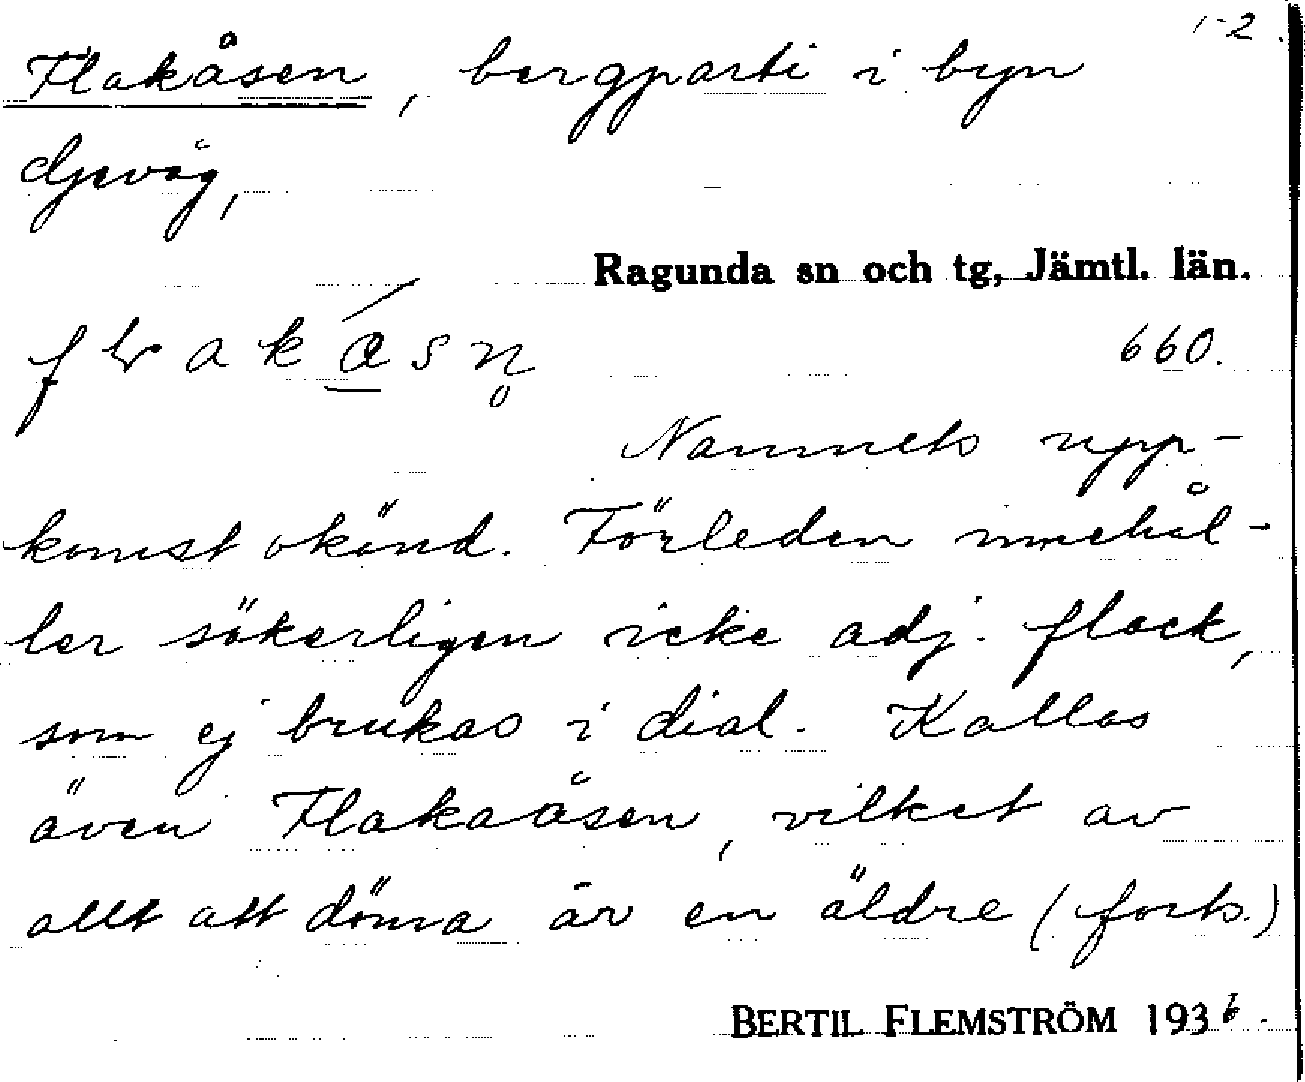 1-2.
Flakåsen, bergparti i byn
Djeväg,
Ragunda sn och tg, Jämtl. län.
660.
Namnets upp-
komst okänd. Förleden innehål-
ler säkerligen icke adj. flack,
som ej brukas i dial. Kallas
även Flakaåsen, vilket av
allt att döma är en äldre (forts.)
BERTIL FLEMSTRÖM 1936.